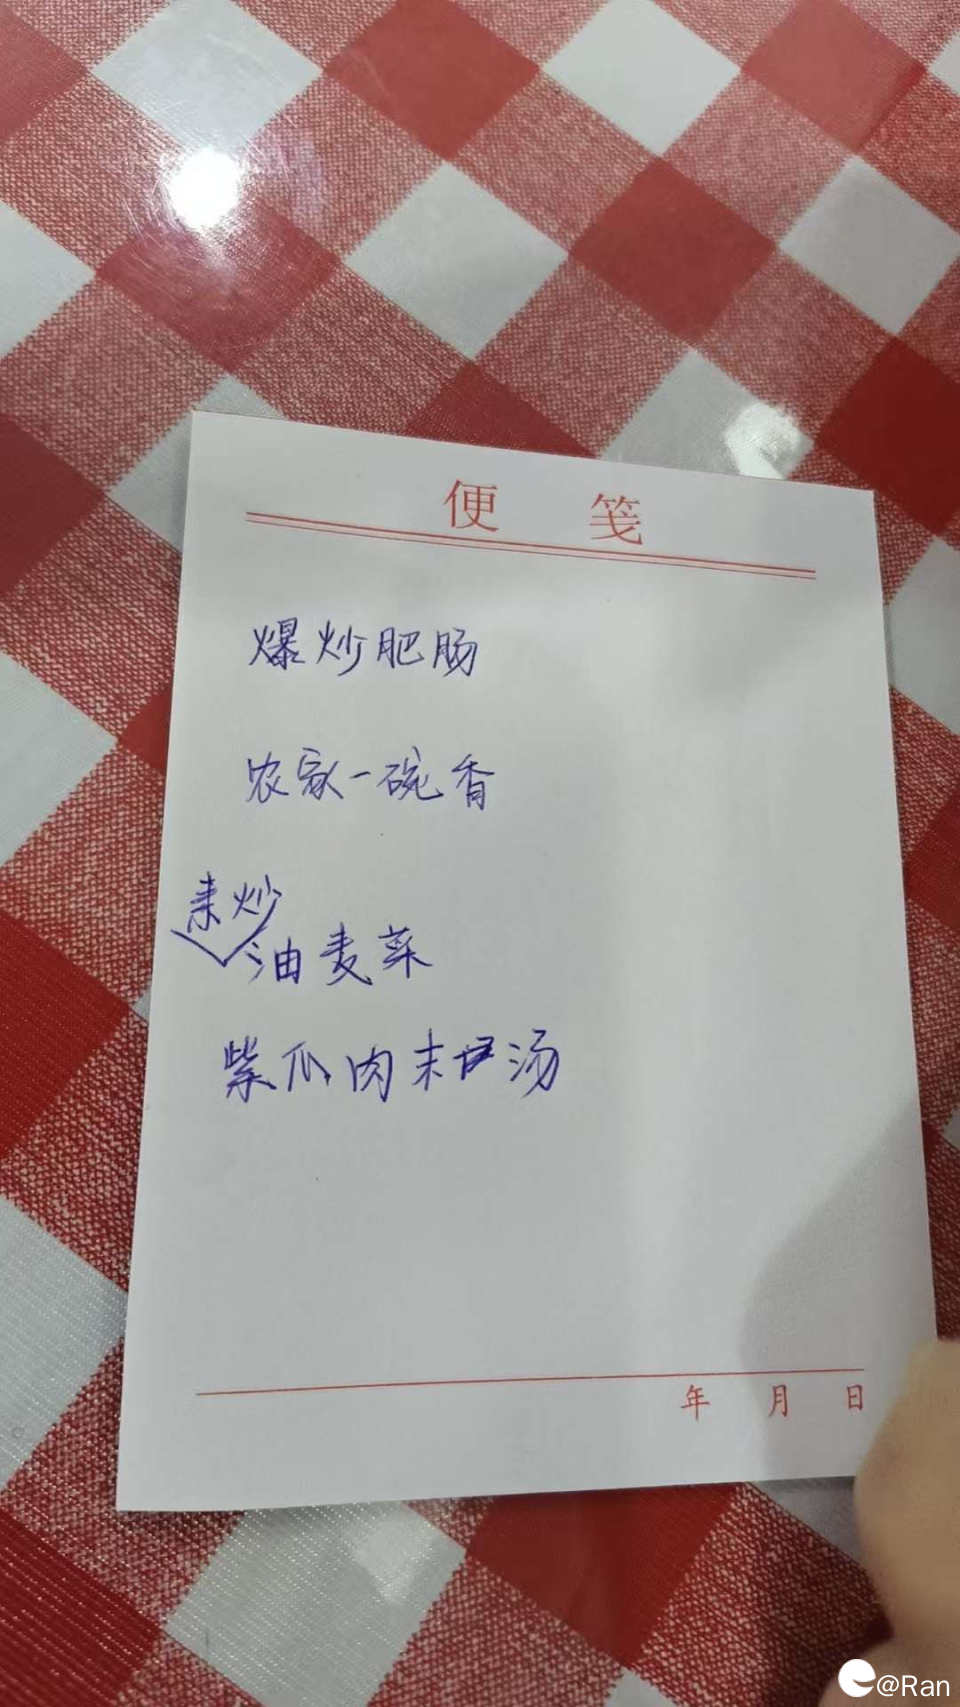 便笺
爆炒肥肠
农家一碗香
素炒
油麦菜
紫瓜肉末汤
年 月 日
@Ran